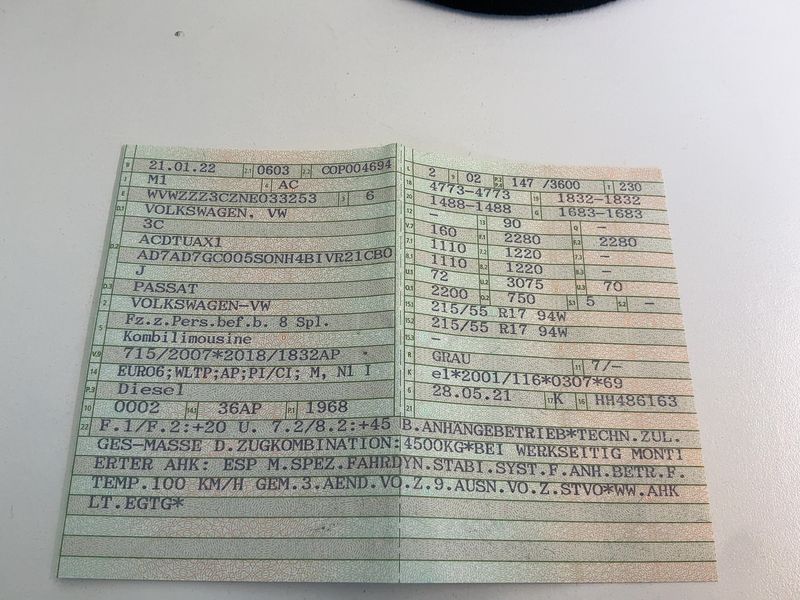 B 21.01.22 2.1 0603 2.2 COP004694
J M1 4 AC
E WVWZZZ3CZNE033253 3 6
D.1 VOLKSWAGEN. VW
3C
D.2 ACDTUAX1
AD7AD7GC005SONH4BIVR21CB0
J
D.3 PASSAT
2 VOLKSWAGEN-VW
5 Fz.z.Pers.bef.b. 8 Spl.
Kombilimousine
V.9 715/2007*2018/1832AP
14 EURO6;WLTP;AP;PI/CI; M, N1 I
P.3 Diesel
10 0002 14.1 36AP P.1 1968
L 2 9 02 P.2 P.4 147 /3600 T 230
18 4773-4773 19 1832-1832
20 1488-1488 G 1683-1683
12 - 13 90 Q -
V.7 160 F.1 2280 F.2 2280
7.1 1110 7.2 1220 7.3 -
8.1 1110 8.2 1220 8.3 -
U.1 72 U.2 3075 U.3 70
O.1 2200 O.2 750 S.1 5 S.2 -
15.1 215/55 R17 94W
15.2 215/55 R17 94W
15.3 -
R GRAU 11 7/-
K e1*2001/116*0307*69
6 28.05.21 17 K 16 HH486163
21
22 F.1/F.2:+20 U. 7.2/8.2:+45 B.ANHÄNGEBETRIEB*TECHN.ZUL.
GES-MASSE D.ZUGKOMBINATION:4500KG*BEI WERKSEITIG MONTI
ERTER AHK: ESP M.SPEZ.FAHRDYN.STABI.SYST.F.ANH.BETR.F.
TEMP.100 KM/H GEM.3.AEND.VO.Z.9.AUSN.VO.Z.STVO*WW.AHK
LT.EGTG*